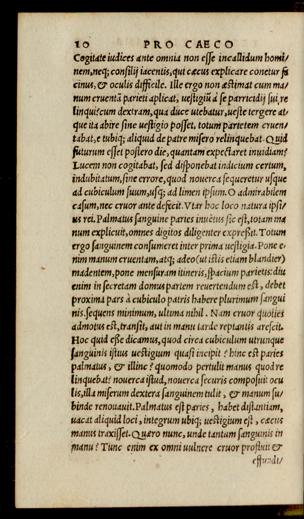 10 PRO CAECO
Cogitate iudices ante omnia non esse incallidum homi-
nem, neq; consilij iacentis, qui cæcus explicare conetur fa
cinus, & oculis difficile. Ille ergo non æstimat cum ma-
num cruentã parieti aplicat, uestigiũ à se parricidij sui, re
linqui? cum dextram, qua duce utebatur, ueste tergere at-
que ita abire sine uestigio posset, totum parietem cruen-
tabat, e tubiq; aliquid de patre misero relinquebat. Quid
futurum esset postero die, quantam expectaret inuidiam?
Lucem non cogitabat, sed disponebat indicium certum,
indubitatum, sine errore, quod nouerca sequeretur usque
ad cubiculum suum, usq; ad limen ipsum. O admirabilem
casum, nec cruor ante defecit. Vtar hoc loco natura ipsi/
us rei. Palmatus sanguine paries inuẽtus sic est, totam ma
num explicuit, omnes digitos diligenter expressit. Totum
ergo sanguinem consumeret inter prima uestigia. Pone e-
nim manum cruentam, atq; adeo (ut istis etiam blandier)
madentem, pone mensuram itineris, spacium parietis: diu
enim in secretam domus partem reuertendum est, debet
proxima pars à cubiculo patris habere plurimum sangui
nis. sequens minimum, ultima nihil. Nam cruor quoties
admotus est, transit, aut in manu tarde reptantis arescit.
Hoc quid esse dicamus, quod circa cubiculum utrunque
sanguinis istius uestigium quasi incipit? hinc est paries
palmatus, & illinc? quomodo pertulit manus quod re
linquebat? nouerca istud, nouerca securis composuit ocu
lis, illa miserum dextera sanguinem tulit, & manum su/
binde renouauit. Palmatus est paries, habet distantiam,
uacat aliquid loci, integrum ubiq; uestigium est, cæcus
manus traxisset. Quæro nunc, unde tantum sanguinis in
manu? Tunc enim ex omni uulnere cruor profluit &
effundi/